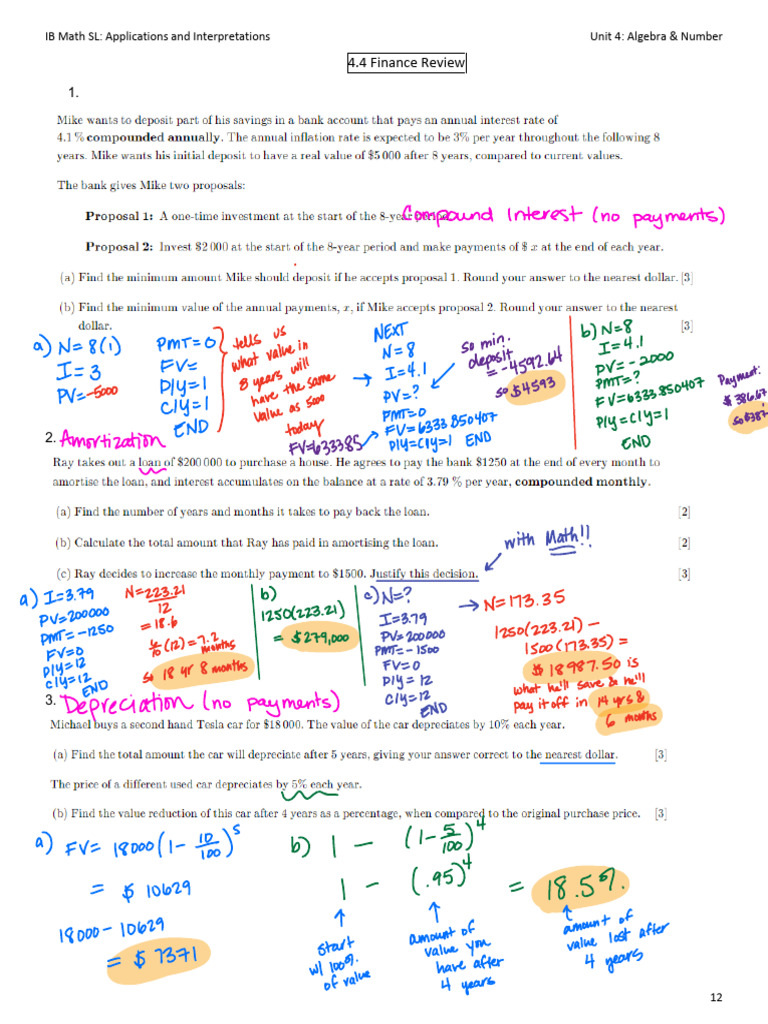 IB Math SL: Applications and Interpretations Unit 4: Algebra & Number
4.4 Finance Review
1.
Mike wants to deposit part of his savings in a bank account that pays an annual interest rate of
4.1 % compounded annually. The annual inflation rate is expected to be 3% per year throughout the following 8
years. Mike wants his initial deposit to have a real value of $5 000 after 8 years, compared to current values.
The bank gives Mike two proposals:
Proposal 1: A one-time investment at the start of the 8-year
Compound Interest (no payments)
Proposal 2: Invest $2 000 at the start of the 8-year period and make payments of $ x at the end of each year.
(a) Find the minimum amount Mike should deposit if he accepts proposal 1. Round your answer to the nearest dollar. [3]
(b) Find the minimum value of the annual payments, x, if Mike accepts proposal 2. Round your answer to the nearest
dollar. [3]
a) N=8(1)
I=3
PV=-5000
PMT=0
FV=
P/Y=1
C/Y=1
END
tells us
what value in
8 years will
have the same
value as 5000
today
FV=6333.85
NEXT
N=8
I=4.1
PV=?
PMT=0
FV=6333.850407
P/Y=C/Y=1 END
so min.
deposit
= -4592.64
so $4593
b) N=8
I=4.1
PV=-2000
PMT=?
FV=6333.850407
P/Y=C/Y=1
END
Payment:
$386.67
so $387
2. Amortization
Ray takes out a loan of $200 000 to purchase a house. He agrees to pay the bank $1250 at the end of every month to
amortise the loan, and interest accumulates on the balance at a rate of 3.79 % per year, compounded monthly.
(a) Find the number of years and months it takes to pay back the loan. [2]
(b) Calculate the total amount that Ray has paid in amortising the loan. [2]
with Math!!
(c) Ray decides to increase the monthly payment to $1500. Justify this decision. [3]
a) I=3.79
PV=200000
PMT=-1250
FV=0
P/Y=12
C/Y=12
END
N=223.21
12
=18.6
6/10(12)=7.2
months
so 18 yr 8 months
b)
1250(223.21)
= $279,000
c) N=?
I=3.79
PV=200000
PMT=-1500
FV=0
P/Y=12
C/Y=12
END
→ N=173.35
1250(223.21) −
1500(173.35) =
$18987.50 is
what he'll save & he'll
pay it off in 14 yrs &
6 months
3. Depreciation (no payments)
Michael buys a second hand Tesla car for $18 000. The value of the car depreciates by 10% each year.
(a) Find the total amount the car will depreciate after 5 years, giving your answer correct to the nearest dollar. [3]
The price of a different used car depreciates by 5% each year.
(b) Find the value reduction of this car after 4 years as a percentage, when compared to the original purchase price. [3]
a) FV= 18000(1-10/100)^5
= $10629
18000-10629
= $7371
b) 1 − (1-5/100)^4
1 − (.95)^4 = 18.5%.
start
w/ 100%
of value
amount of
value you
have after
4 years
amount of
value lost after
4 years
12